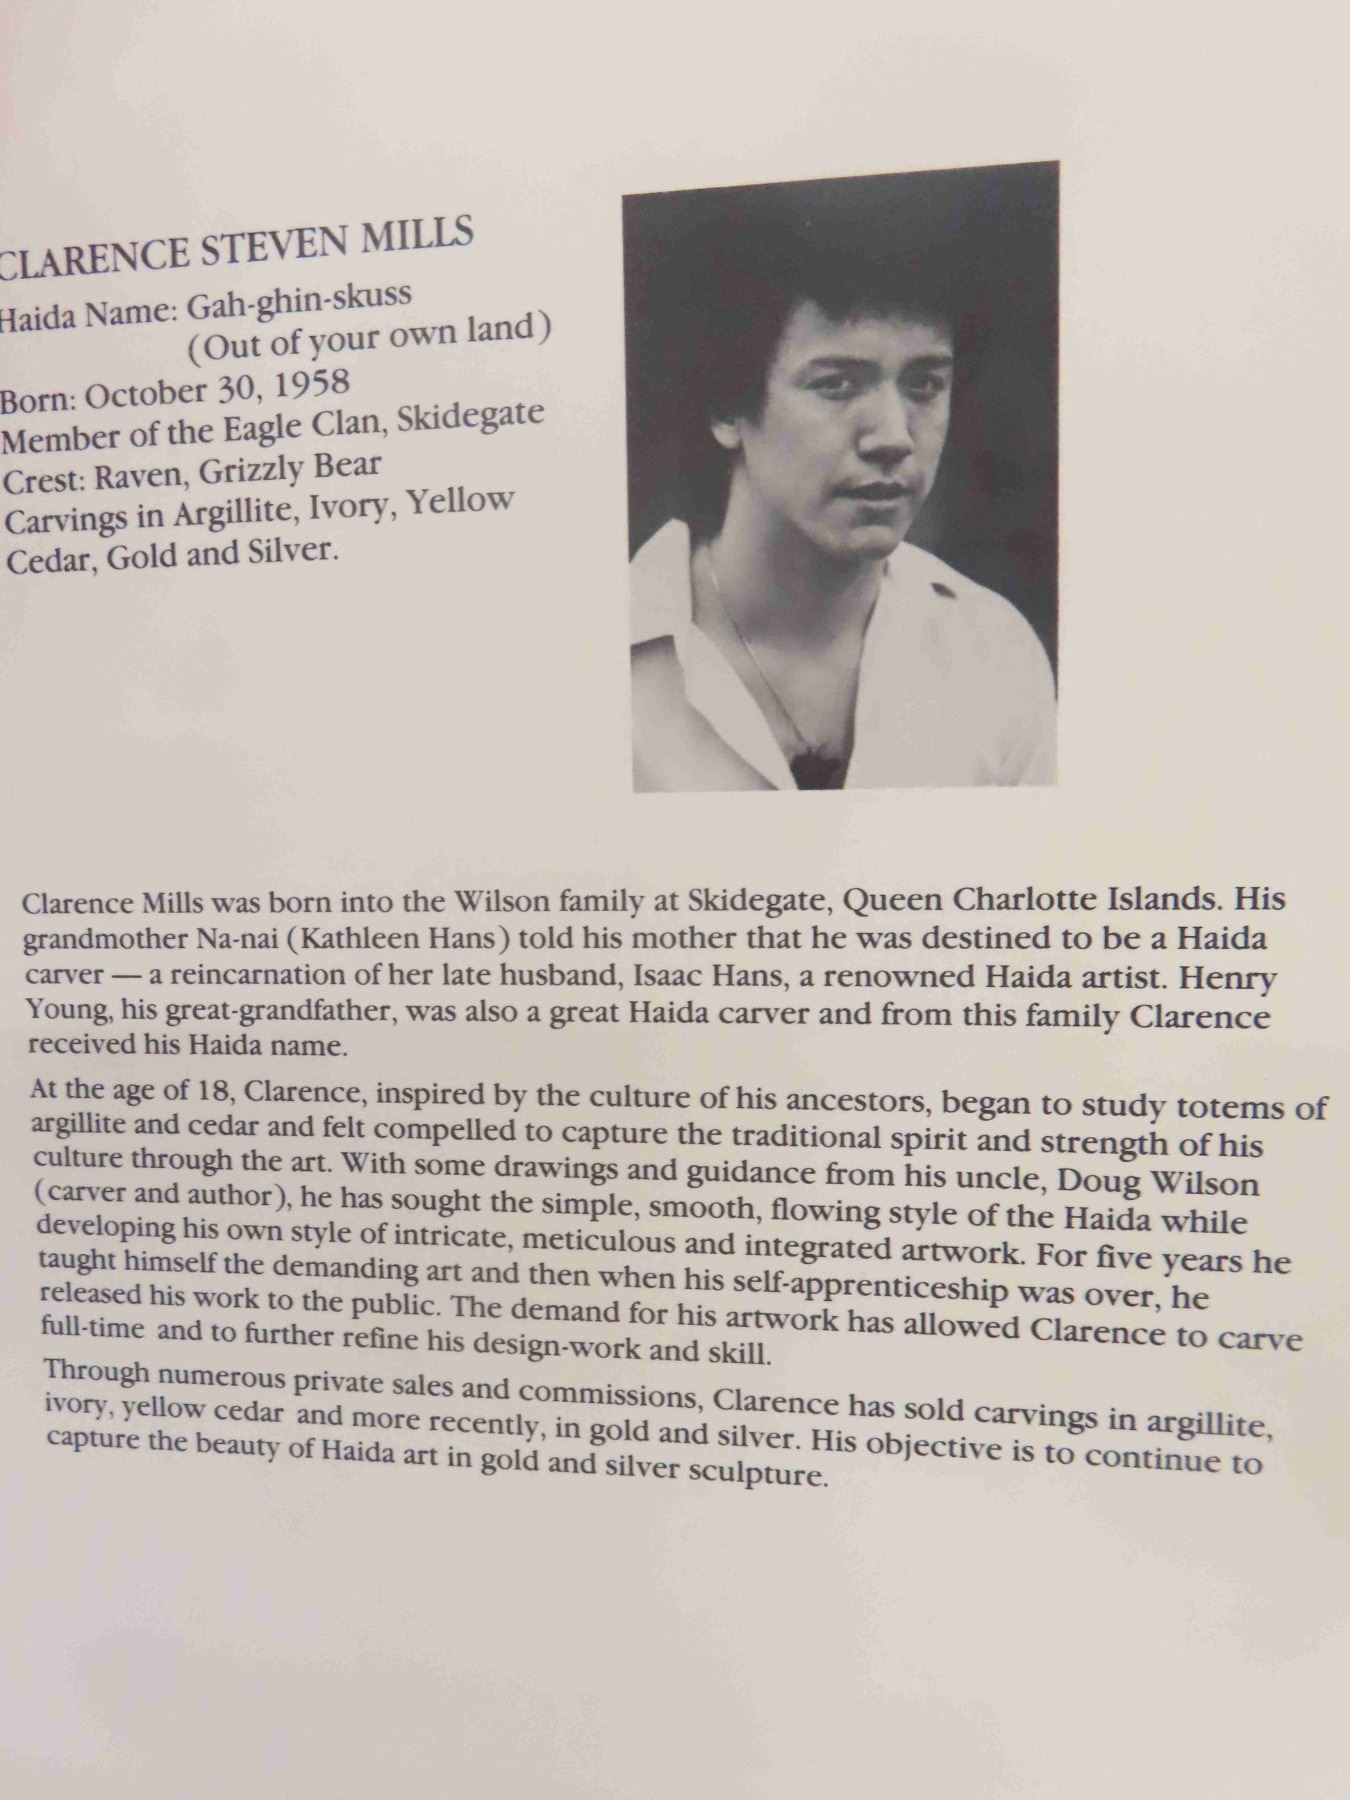 CLARENCE STEVEN MILLS
Haida Name: Gah-ghin-skuss
(Out of your own land)
Born: October 30, 1958
Member of the Eagle Clan, Skidegate
Crest: Raven, Grizzly Bear
Carvings in Argillite, Ivory, Yellow
Cedar, Gold and Silver.
Clarence Mills was born into the Wilson family at Skidegate, Queen Charlotte Islands. His
grandmother Na-nai (Kathleen Hans) told his mother that he was destined to be a Haida
carver — a reincarnation of her late husband, Isaac Hans, a renowned Haida artist. Henry
Young, his great-grandfather, was also a great Haida carver and from this family Clarence
received his Haida name.
At the age of 18, Clarence, inspired by the culture of his ancestors, began to study totems of
argillite and cedar and felt compelled to capture the traditional spirit and strength of his
culture through the art. With some drawings and guidance from his uncle, Doug Wilson
(carver and author), he has sought the simple, smooth, flowing style of the Haida while
developing his own style of intricate, meticulous and integrated artwork. For five years he
taught himself the demanding art and then when his self-apprenticeship was over, he
released his work to the public. The demand for his artwork has allowed Clarence to carve
full-time and to further refine his design-work and skill.
Through numerous private sales and commissions, Clarence has sold carvings in argillite,
ivory, yellow cedar and more recently, in gold and silver. His objective is to continue to
capture the beauty of Haida art in gold and silver sculpture.